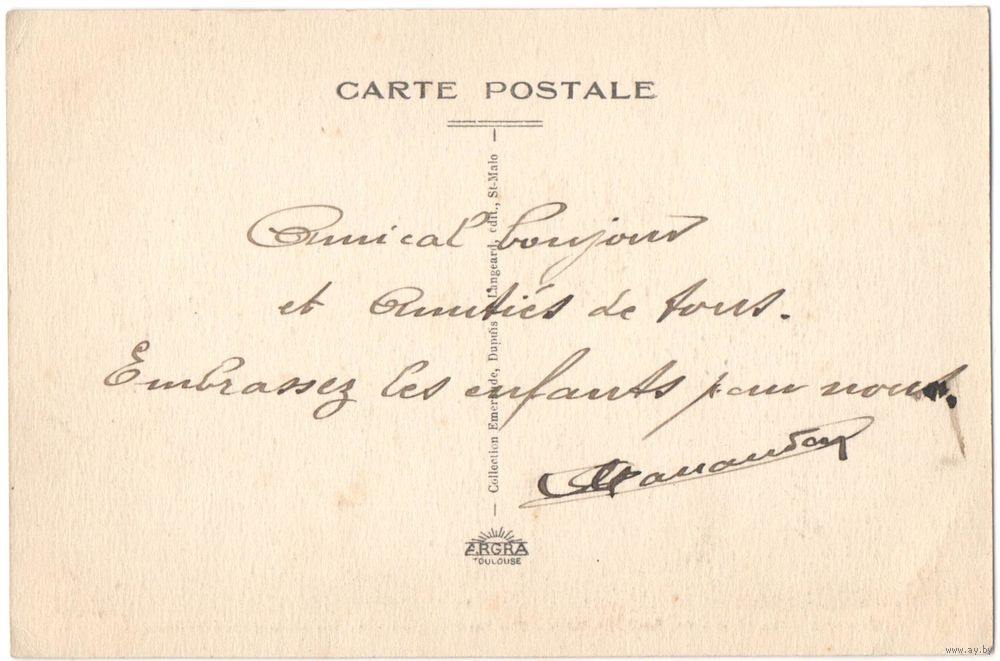 CARTE POSTALE
Amical bonjour
et Amitiés de tous.
Embrassez les enfants pour nous.
— Collection Emeraude, Dupuis Langeard, édit., St-Malo —
ERGRA
TOULOUSE
www.ay.by